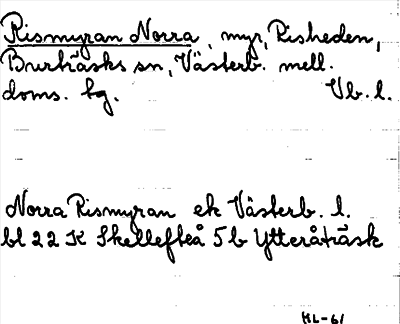 Rismyran Norra, myr, Risheden,
Burträsks sn, Västerb. mell.
doms. hg. Vb. l.
Norra Rismyran ek Västerb. l.
bl 22 K Skellefteå 5b Ytteråträsk
HL-61